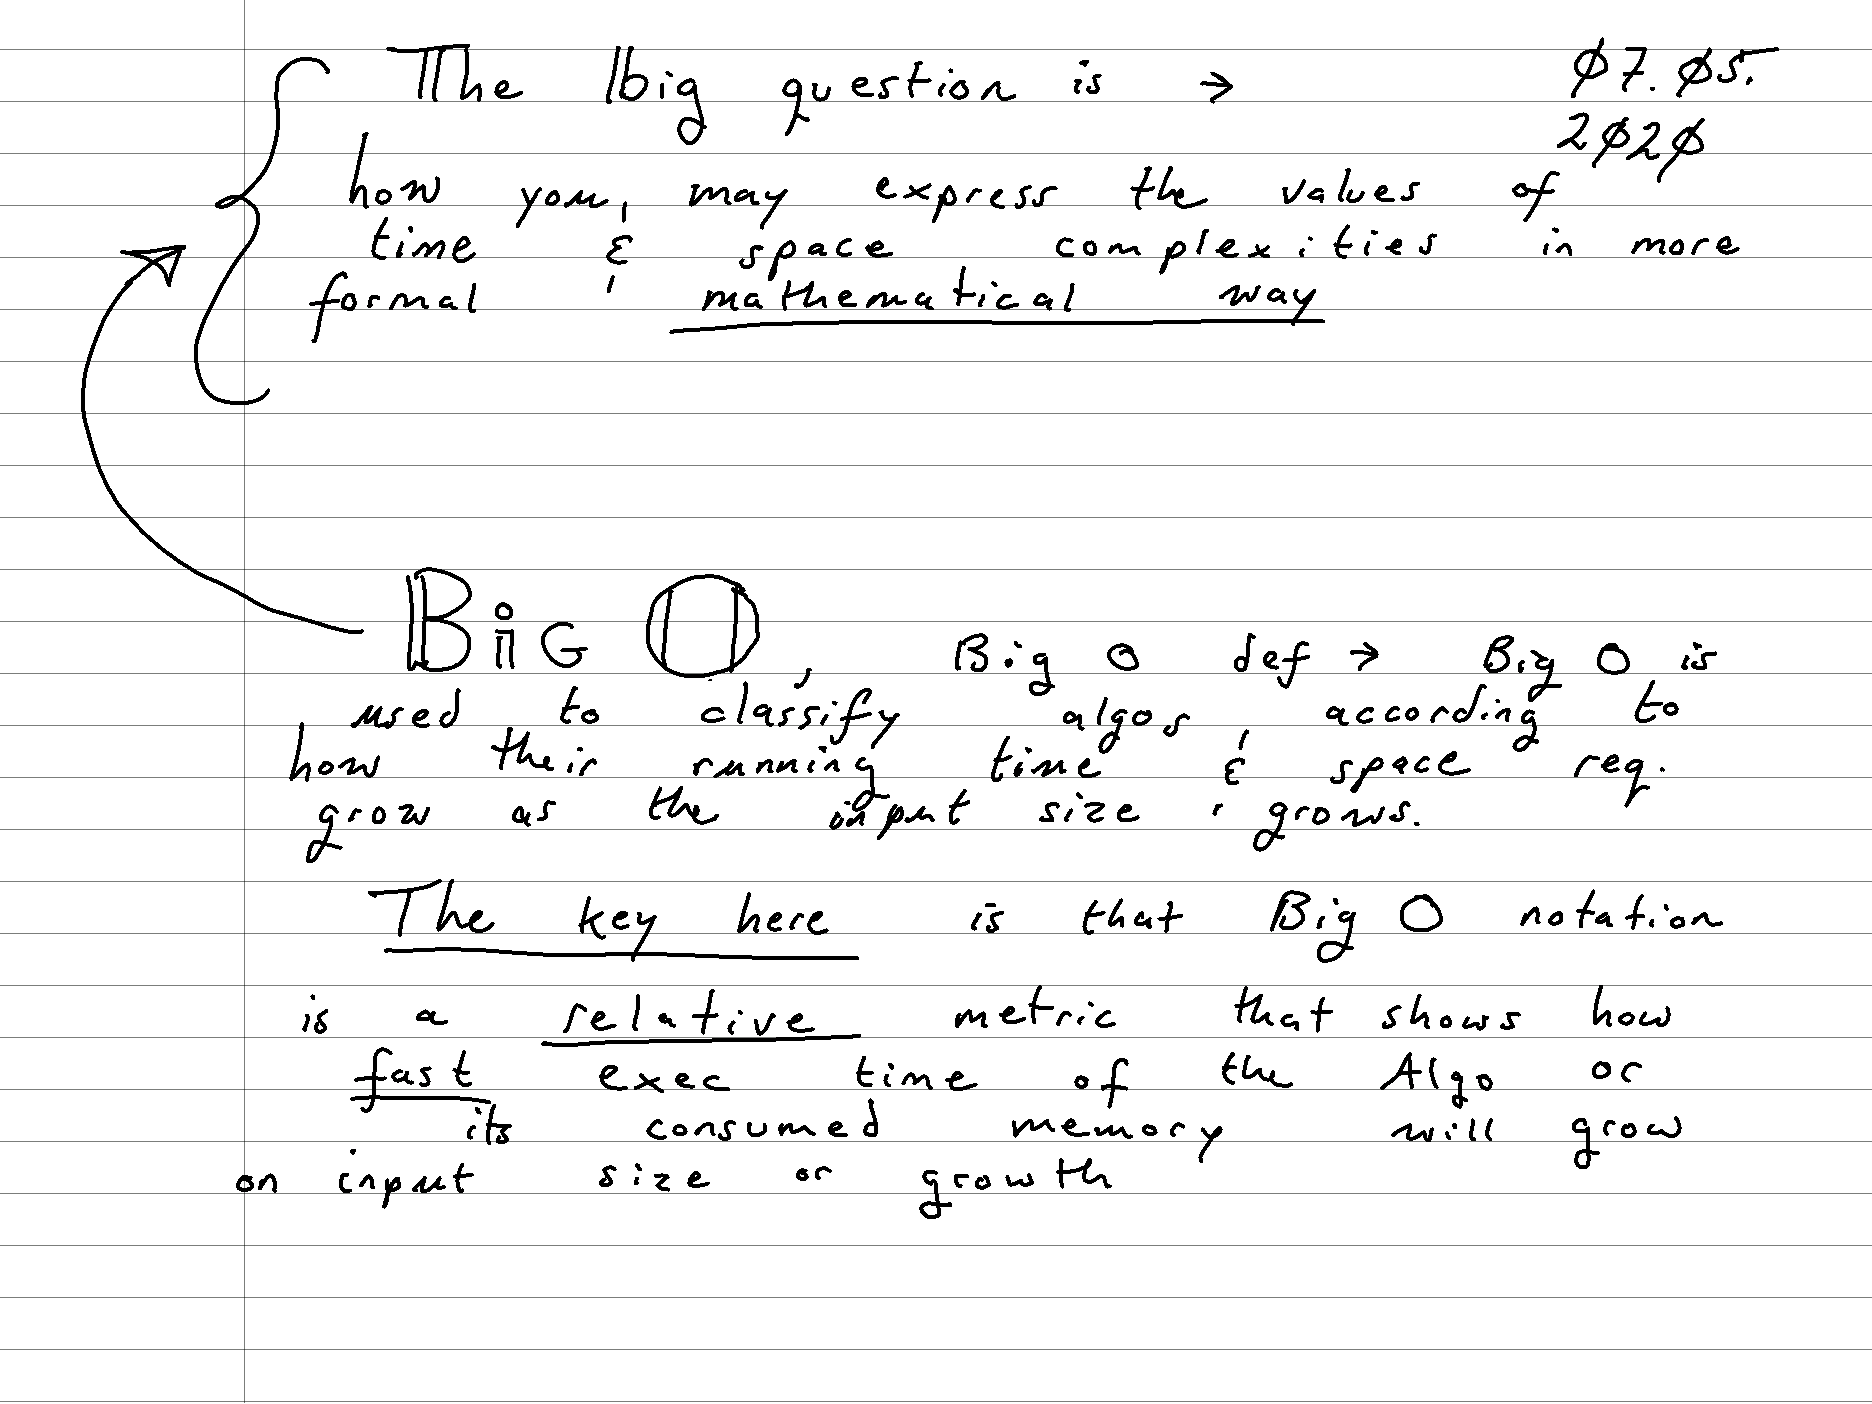 The big question is → 07.05.
2020
how you may express the values of
time & space complexities in more
formal mathematical way
BiG O, Big O def → Big O is
used to classify algos according to
how their running time & space req.
grow as the input size grows.
The key here is that Big O notation
is a relative metric that shows how
fast exec time of the Algo or
its consumed memory will grow
on input size or growth